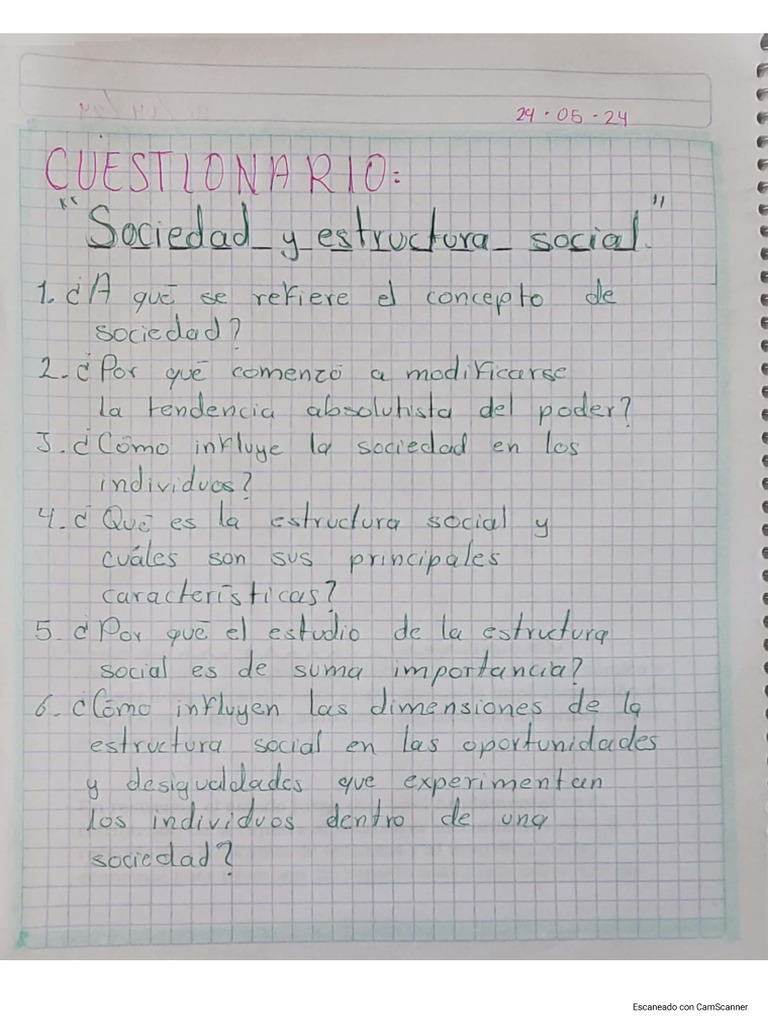 29 · 05 · 24
CUESTIONARIO:
"Sociedad y estructura social."
1. ¿A qué se refiere el concepto de
sociedad?
2. ¿Por qué comenzó a modificarse
la tendencia absolutista del poder?
3. ¿Cómo influye la sociedad en los
individuos?
4. ¿Qué es la estructura social y
cuáles son sus principales
características?
5. ¿Por qué el estudio de la estructura
social es de suma importancia?
6. ¿Cómo influyen las dimensiones de la
estructura social en las oportunidades
y desigualdades que experimentan
los individuos dentro de una
sociedad?
Escaneado con CamScanner